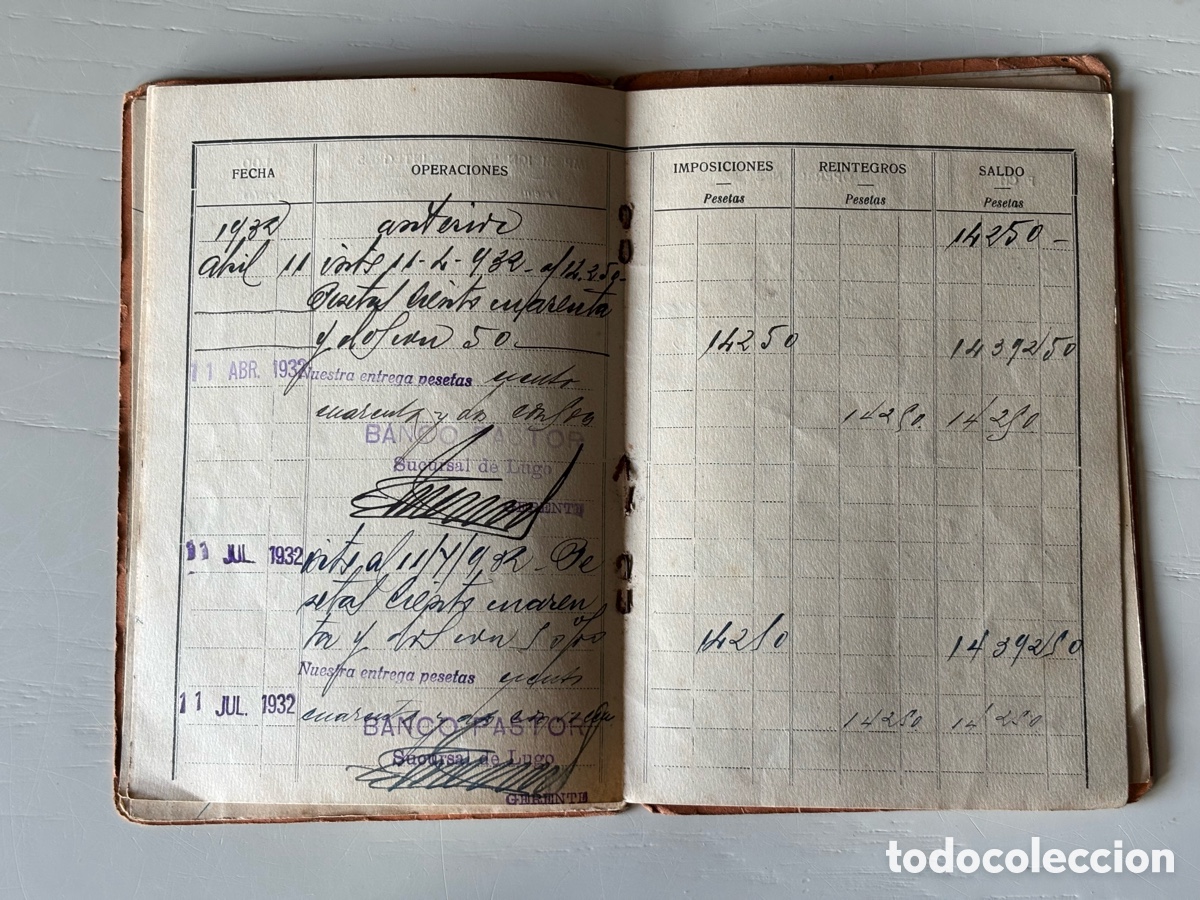 FECHA OPERACIONES IMPOSICIONES REINTEGROS SALDO
Pesetas Pesetas Pesetas
1932 anterior 14250-
abril 11 ints 11-4-932- s/14.250-
Pesetas ciento cuarenta
y dos con 50.- 14250 14392/50
11 ABR. 1932 Nuestra entrega pesetas ciento
cuarenta y dos con 14250. 14250
BANCO PASTOR
Sucursal de Lugo
GERENTE
11 JUL 1932 ints al 11/7/932- Pe
setas ciento cuaren
ta y dos con 50 14250 14392 50
Nuestra entrega pesetas ciento
11 JUL. 1932 cuarenta y dos con 14250 14250
BANCO PASTOR
Sucursal de Lugo
GERENTE
todocoleccion